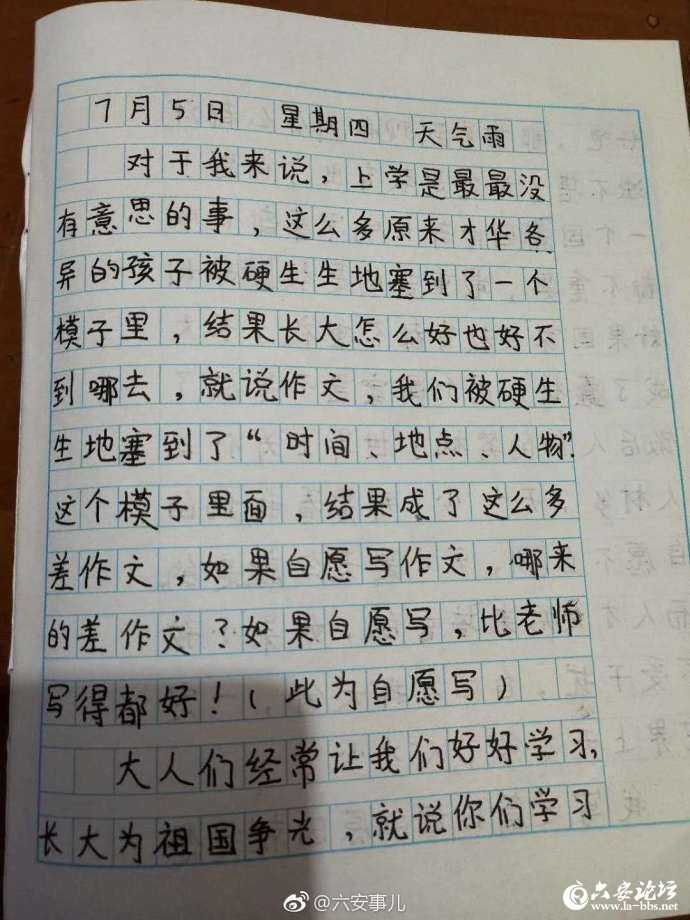 7月5日 星期四 天气雨
对于我来说，上学是最最没
有意思的事，这么多原来才华各
异的孩子被硬生生地塞到了一个
模子里，结果长大怎么好也好不
到哪去，就说作文，我们被硬生
生地塞到了“时间、地点、人物”
这个模子里面，结果成了这么多
差作文，如果自愿写作文，哪来
的差作文？如果自愿写，比老师
写得都好！（此为自愿写）
大人们经常让我们好好学习，
长大为祖国争光，就说你们学习
@六安事儿
六安论坛
www.la-bbs.net